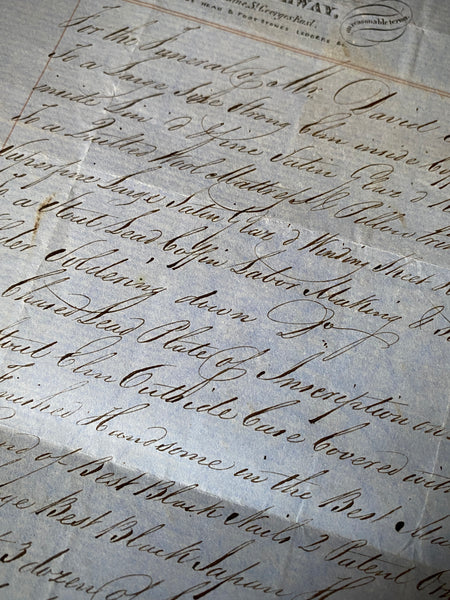 WAY.
St Georges East.
HEAD & FOOT STONES LEDGERS
on reasonable terms
For the Funeral of Mr. David
To a Large Size Strong Elm inside Coff
inside Lin'd fine Satin Glaz'd
To a Quilted Wool Mattress & Pillow
Superfine Large Satin Glaz'd Winding Sheet
To a Stout Lead Coffin Labor Making &
Soldering down Do
Chased Lead Plate of Inscription on
Stout Elm Outside Case Covered with
finished Handsome in the Best
of Best Black Nails 2 Patent
Best Black Japan
3 dozen of